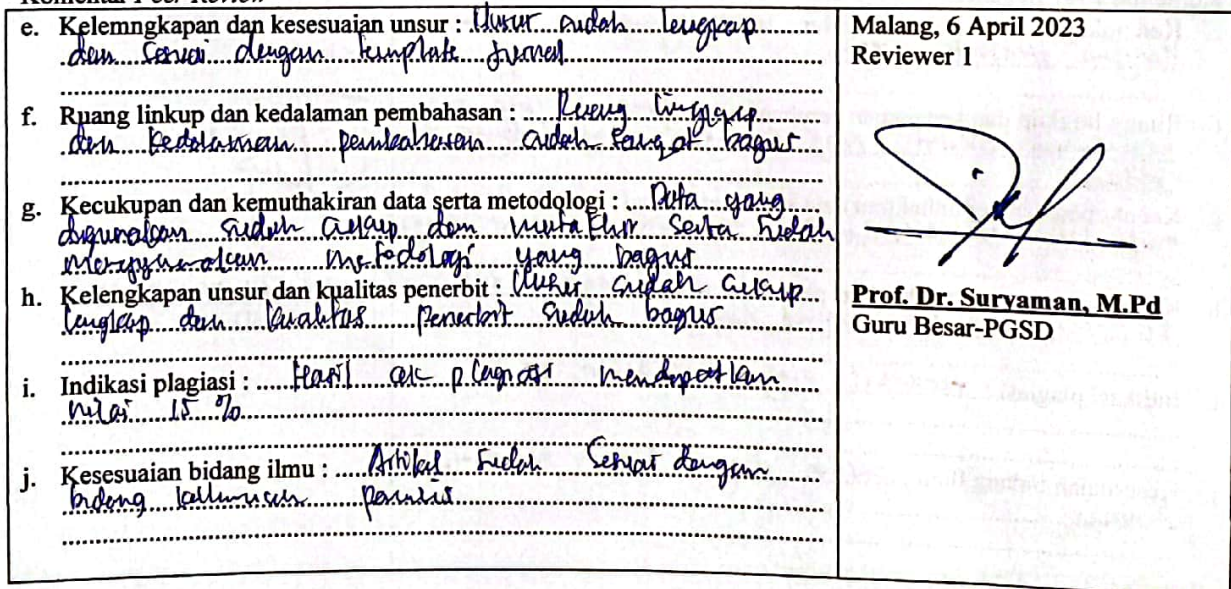 Komentar Peer Review
e. Kelemngkapan dan kesesuaian unsur : Unsur sudah lengkap
dan sesuai dengan template jurnal
f. Ruang linkup dan kedalaman pembahasan : Ruang lingkup
dan kedalaman pembahasan sudah sangat bagus
g. Kecukupan dan kemuthakiran data serta metodologi : Data yang
digunakan sudah cukup dan mutakhir serta sudah
menggunakan metodologi yang bagus
h. Kelengkapan unsur dan kualitas penerbit : Unsur sudah cukup
lengkap dan kualitas penerbit sudah bagus
i. Indikasi plagiasi : Hasil cek plagiasi mendapatkan
nilai 15 %
j. Kesesuaian bidang ilmu : Artikel sudah sesuai dengan
bidang keilmuan penulis
Malang, 6 April 2023
Reviewer 1
Prof. Dr. Suryaman, M.Pd
Guru Besar-PGSD